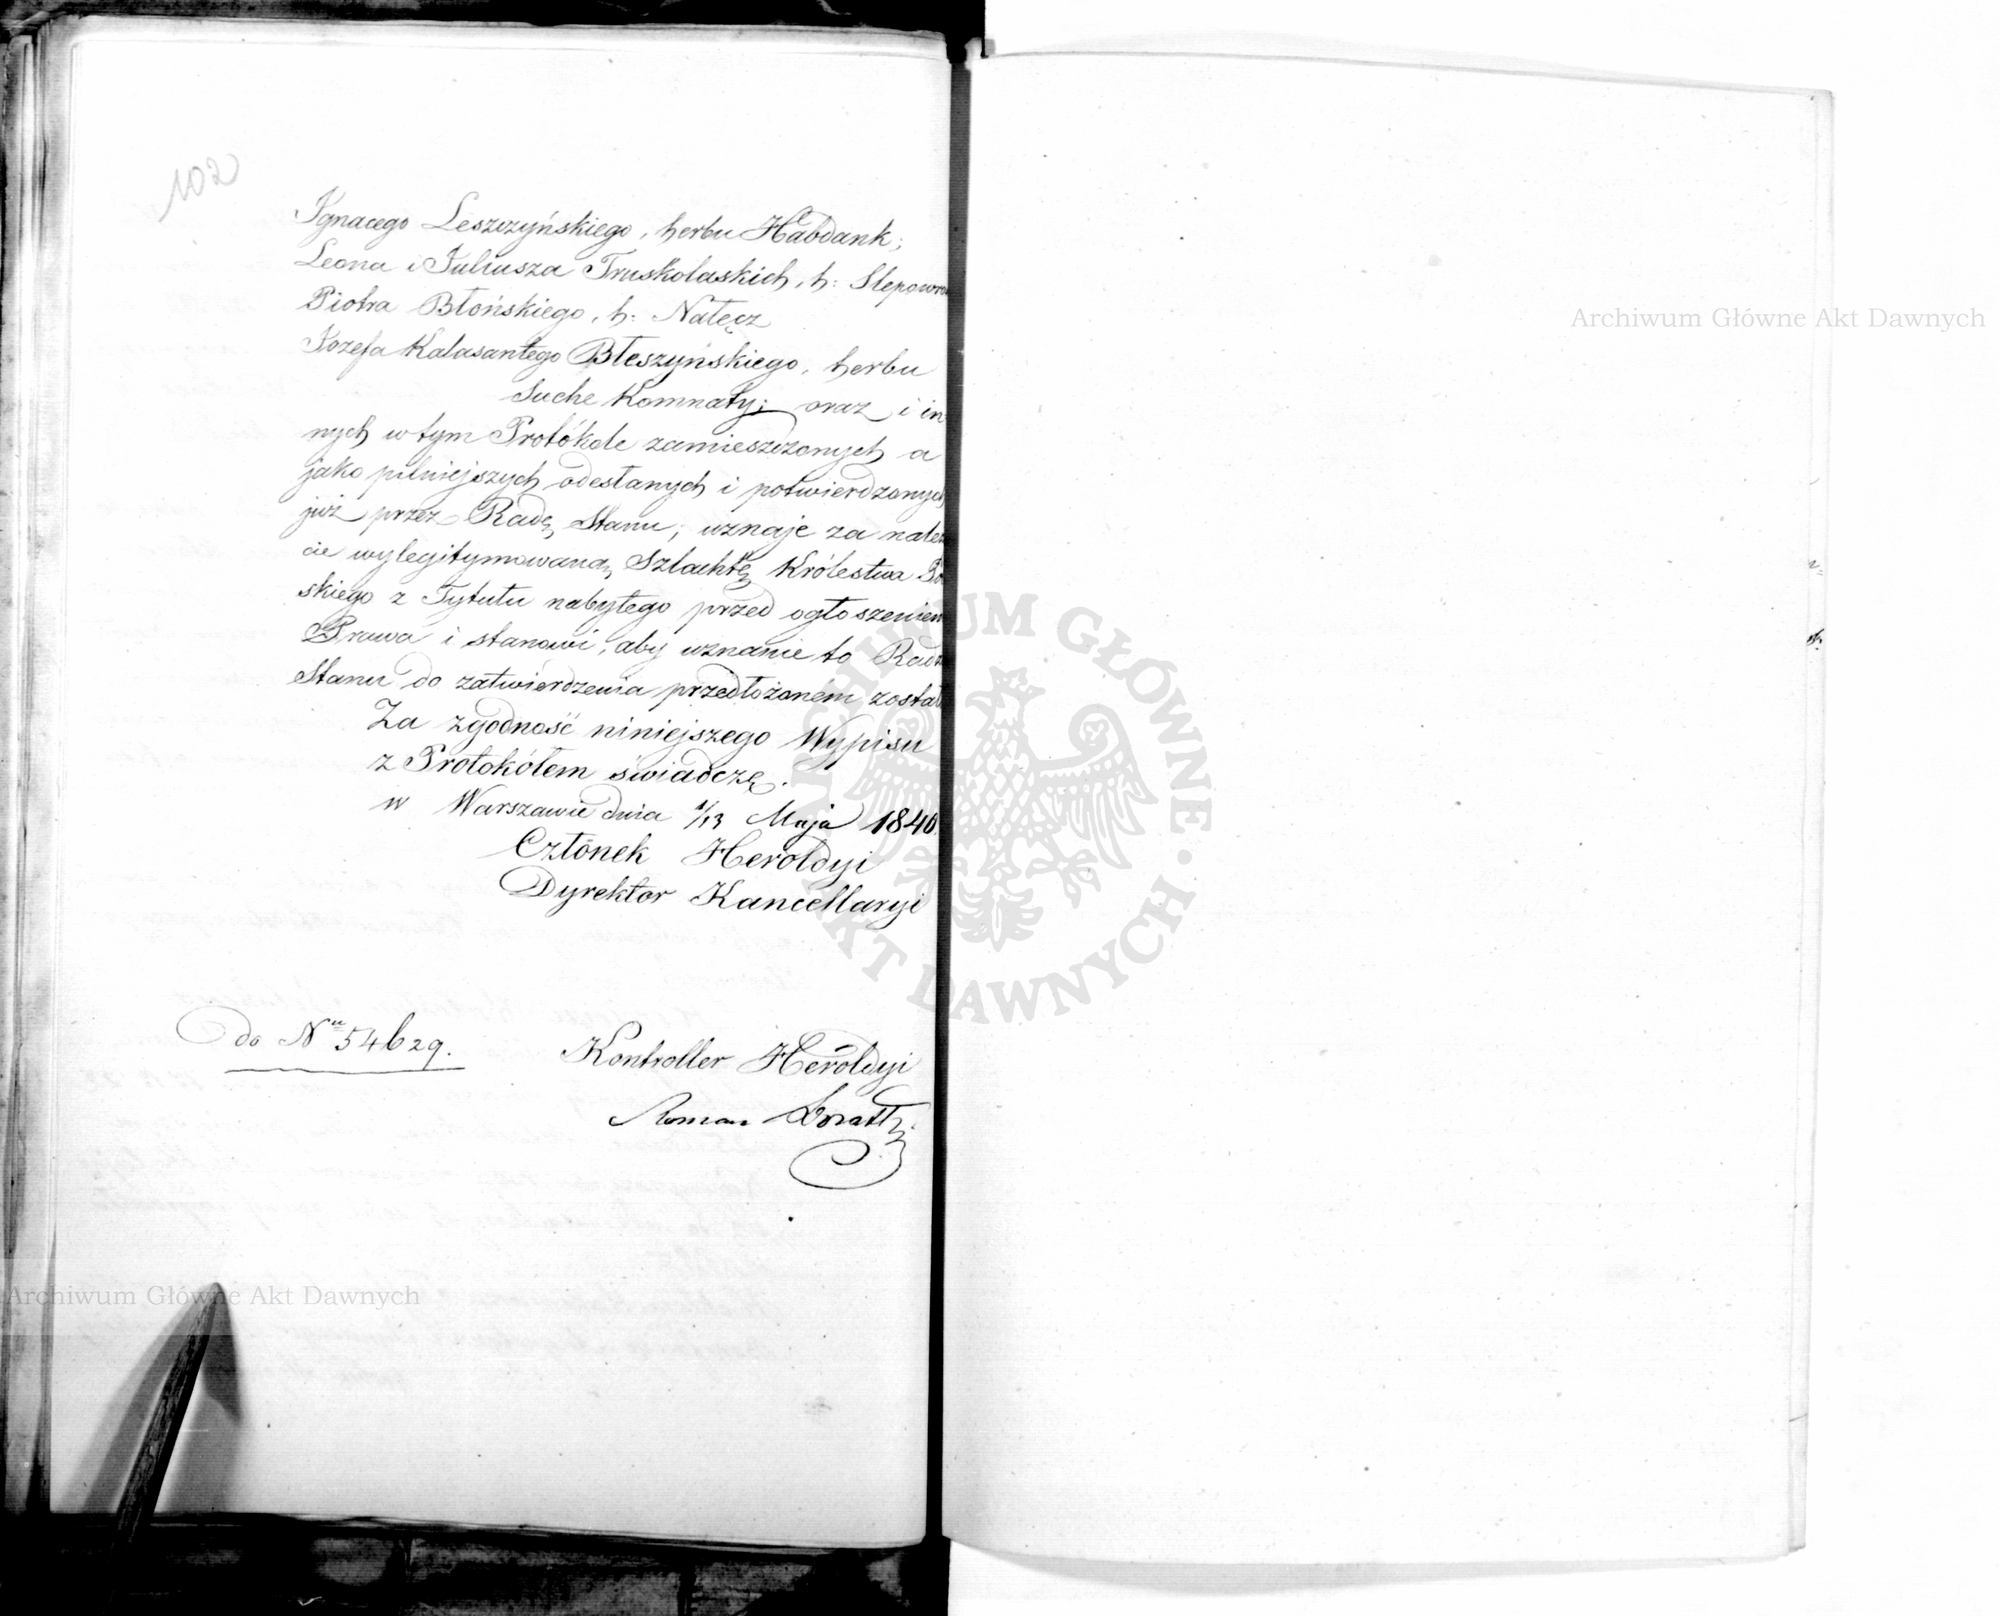 102
Ignacego Leszczyńskiego, herbu Habdank;
Leona i Juliusza Truskolaskich, h: Slepowro
Piotra Błońskiego, h: Nałęcz
Jozefa Kalasantego Błeszyńskiego, herbu
Suche Komnaty; oraz i in
nych w tym Protókole zamieszczonych a
jako pilniejszych odesłanych i potwierdzonych
już przez Radę Stanu, uznaje za należ
cie wylegitymowaną Szlachtę Królestwa Po
skiego z Tytułu nabytego przed ogłoszeniem
Prawa i stanowi, aby uznanie to Radz
Stanu do zatwierdzenia przedłożoném został
Za zgodność niniejszego Wypisu
z Protokółem świadczę.
w Warszawie dnia 1/13 Maja 1840.
Członek Heroldyi
Dyrektor Kancellaryi
do Nru 54629.
Kontroller Heroldyi
Roman
Archiwum Główne Akt Dawnych
Archiwum Główne Akt Dawnych
ARCHIWUM GŁÓWNE · AKT DAWNYCH ·